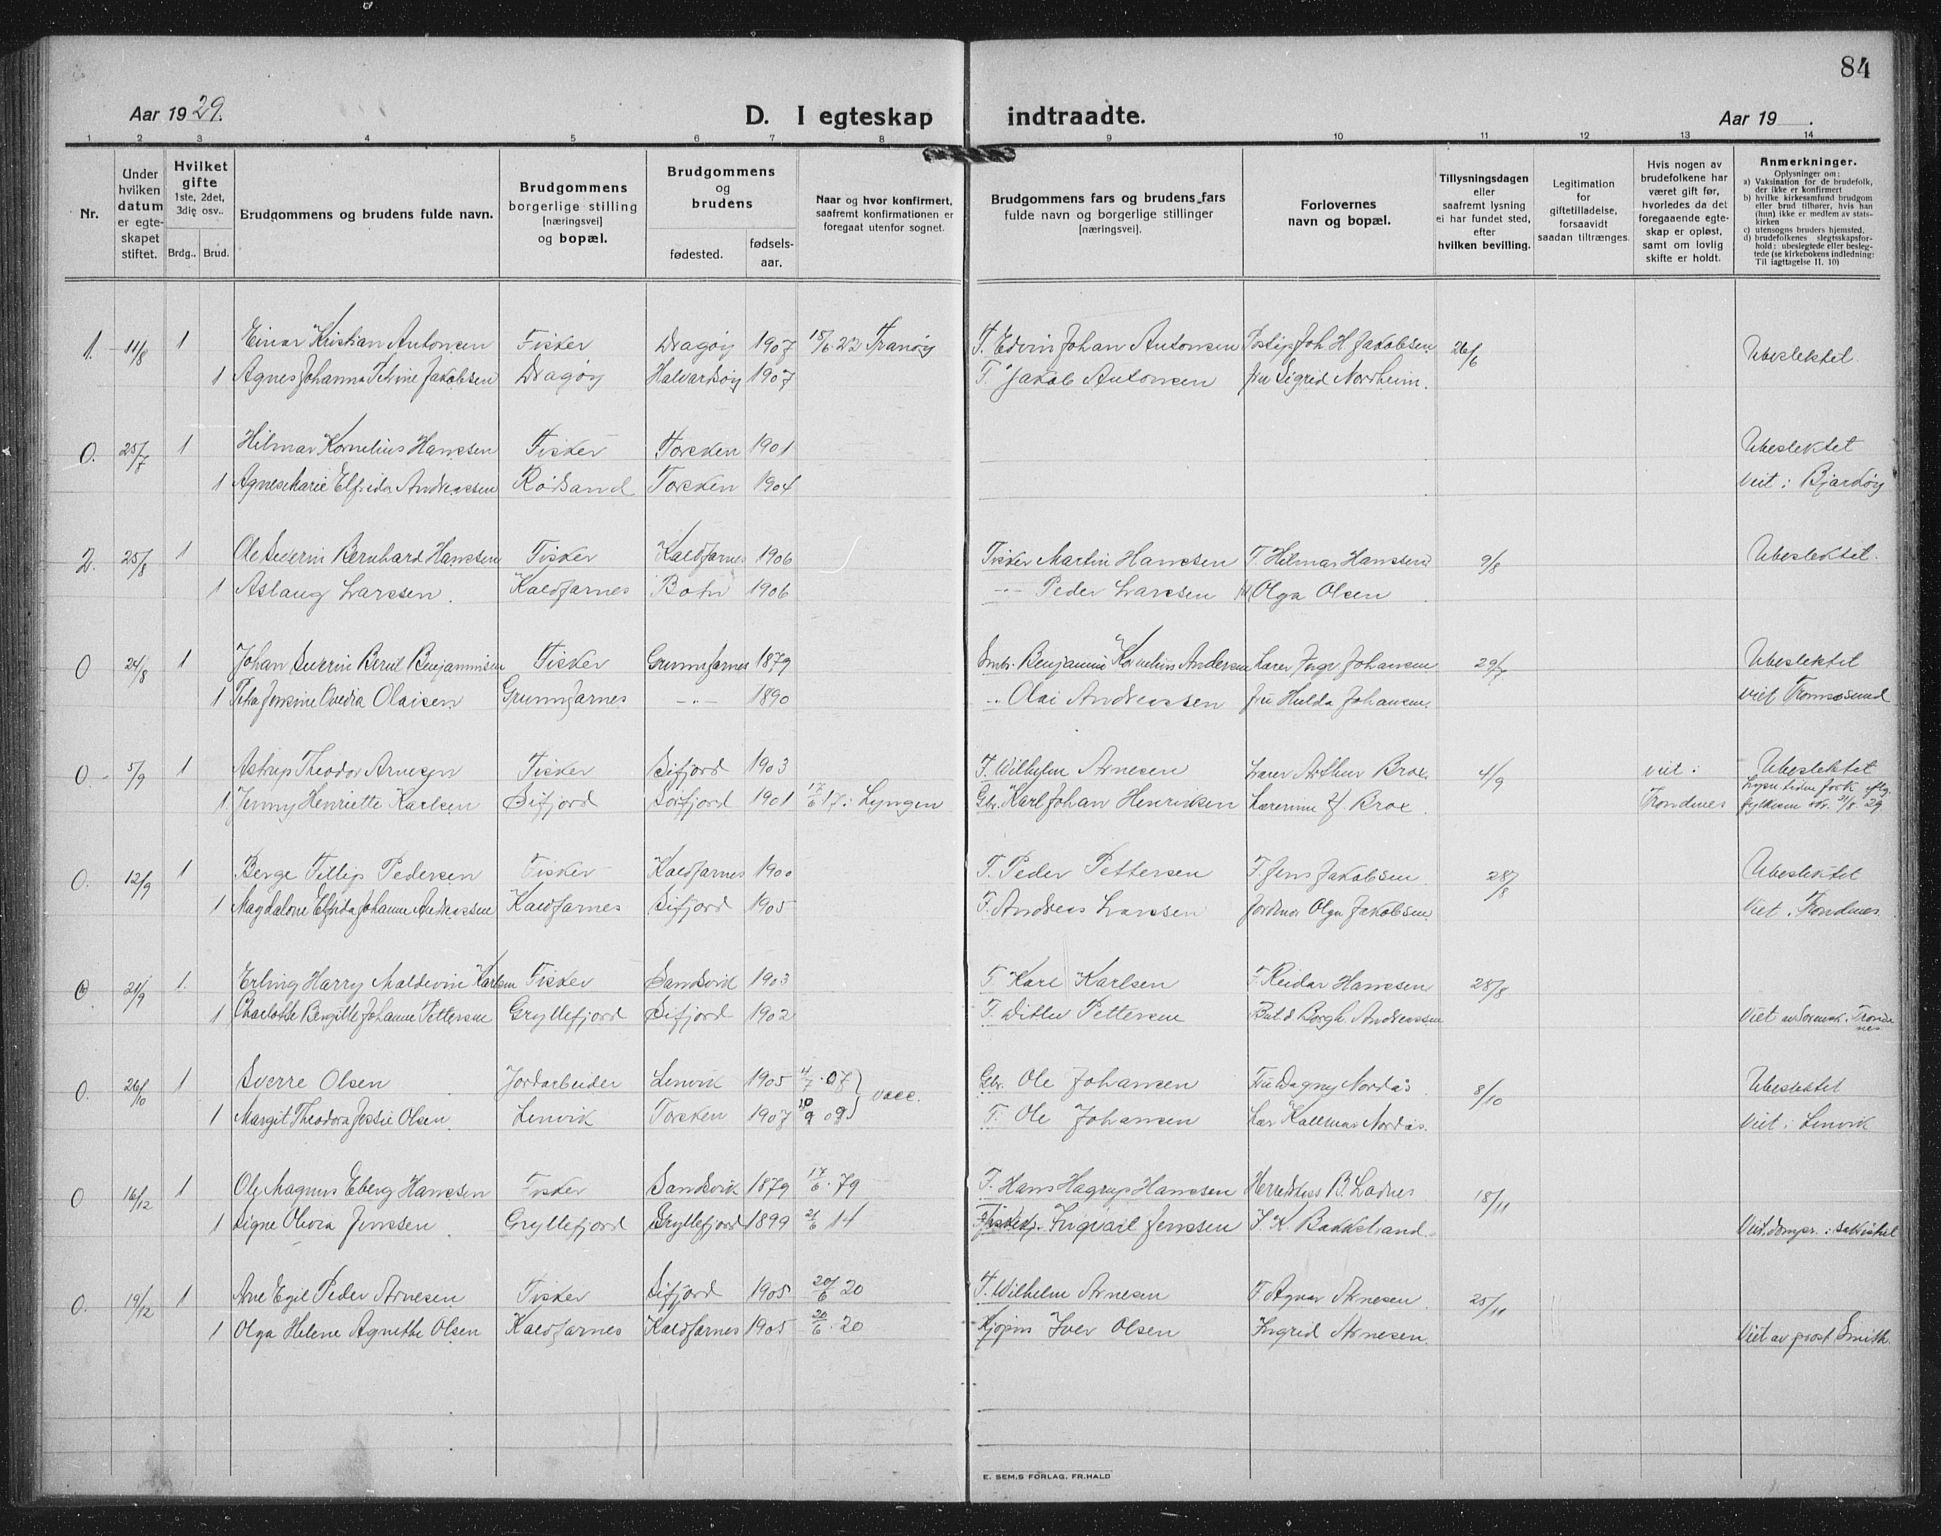 84
Aar 1929.
D. I egteskap indtraadte.
Aar 19 .
1 2 3 4 5 6 7 8 9 10 11 12 13 14
Nr.
Under hvilken datum er egteskapet stiftet.
Hvilket gifte 1ste, 2det, 3die osv..
Brdg.. Brud.
Brudgommens og brudens fulde navn.
Brudgommens borgerlige stilling [næringsvei] og bopæl.
Brudgommens og brudens
fødested.
fødsels-aar.
Naar og hvor konfirmert, saafremt konfirmationen er foregaat utenfor sognet.
Brudgommens fars og brudens fars fulde navn og borgerlige stillinger [næringsvei].
Forlovernes navn og bopæl.
Tillysningsdagen eller saafremt lysning ei har fundet sted, efter hvilken bevilling.
Legitimation for giftetilladelse, forsaavidt saadan tiltrænges.
Hvis nogen av brudefolkene har været gift før, hvorledes da det foregaaende egteskap er opløst, samt om lovlig skifte er holdt.
Anmerkninger.
Oplysninger om:
a) Vaksination for de brudefolk, der ikke er konfirmert
b) hvilke kirkesamfund brudgom eller brud tilhører, hvis han (hun) ikke er medlem av statskirken
c) utensogns bruders hjemsted.
d) brudefolkenes slegtsskapsforhold: ubeslegtede eller beslegtede (se kirkebokens indledning: Til iagttagelse II. 10)
1. 14/8 1 Einar Kristian Antonsen Fisker Dragøy 1907 18/6 22 Tranøy F. Edvin Johan Antonsen Joh H Jakobsen 26/6 Ubeslektet.
1 Agnes Johanna Petrine Jakobsen Dragøy Halvardsøy 1907 F. Jakob Antonsen fru Sigrid Nordheim.
0. 25/7 1 Hilmar Kornelius Hanssen Fisker Torsken 1901 Ubeslektet
1 Agnes Marie Elfrida Andreassen Rødsand Torsken 1904 Viet i Bjarkøy
2. 25/8 1 Ole Severin Bernhard Hanssen Fisker Kaldfarnes 1906 Fisker Martin Hanssen F. Hilmar Hanssen 9/8 Ubeslektet.
1 Aslaug Larssen. Kaldfarnes Botn 1906 -"- Peder Larssen Olga Olsen
0 24/8 1 Johan Severin Bernt Benjaminsen Fisker Grunnfarnes 1879 Benjamin Kornelius Andersen Lærer Johansen 29/7 Ubeslektet
1 Petra Jensine Ovedia Olaisen Grunnfarnes -"- 1890 " Olai Andreassen fru Hulda Johansen. viet Tromsøsund
0 5/9 1 Astrup Theodor Arnesen Fisker Sifjord 1903 F. Wilhelm Arnesen Lærer Arthur Brox. 4/9 viet i Ubeslektet
1 Jenny Henriette Karlsen Sifjord Sørfjord 1901 17/6 17 i Lyngen Karl Johan Henriksen Lærerinne J. Brox Trondnes 31/8 29.
0. 12/9 1 Berge Fillip Pedersen Fisker Kaldfarnes 1900 F. Peder Pettersen F. Jens Jakobsen 28/8 Ubeslektet
1 Magdalone Elfrida Johanne Andreassen Kaldfarnes Sifjord 1905 F. Andreas Larssen Jordmor Olga Jakobsen Viet i Trondnes.
0. 21/9 1. Erling Harry Maldevin Karlsen Fisker Sandsvik 1903 F. Karl Karlsen F. Reidar Hanssen 28/8
1 Charlotte Bergitte Johanne Pettersen Gryllefjord Sifjord 1902 F. Ditlev Pettersen But.d. Borgh. Andreassen Viet av Sorensk. i Trondenes
0. 26/10 1 Sverre Olsen Jordarbeider Lenvik 1905 4/7 07 } vacc. Gbr. Ole Johansen Fru Dagny Nordås 8/10 Ubeslektet
1 Margit Theodora Jessie Olsen Lenvik Torsken 1907 10/9 09 F. Ole Johansen Lær Kallmar Nordås. Viet i Lenvik
0 16/12 1 Ole Magnus Eberg Hanssen Fisker Sandsvik 1879 17/6. 79 F. Hans Hagrup Hanssen Herredskass B. Ladnes 18/11
1 Signe Olivia Jenssen. Gryllefjord Gryllefjord 1899 21/6 14 Ingvart Jenssen J. K. Bakkstrand.
0. 19/12 1 Arne Egil Peder Arnesen Fisker Sifjord 1905 20/6 20 F. Wilhelm Arnesen F. Agnar Arnesen 25/11
1 Olga Helene Agnethe Olsen Kaldfarnes Kaldfarnes 1905 20/6. 20 Kjøpm Iver Olsen Ingrid Arnesen. Viet av prost Smith.
E. SEM.S FORLAG, FR.HALD